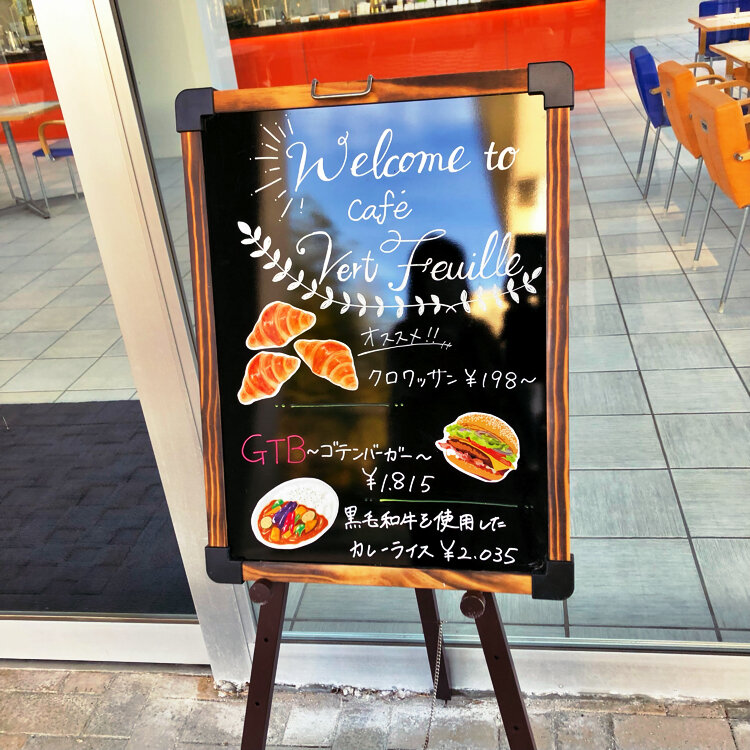 Welcome to
café
Vert Feuille
オススメ!!
クロワッサン ¥198~
GTB~ゴテンバーガー~
¥1.815
黒毛和牛を使用した
カレーライス ¥2.035